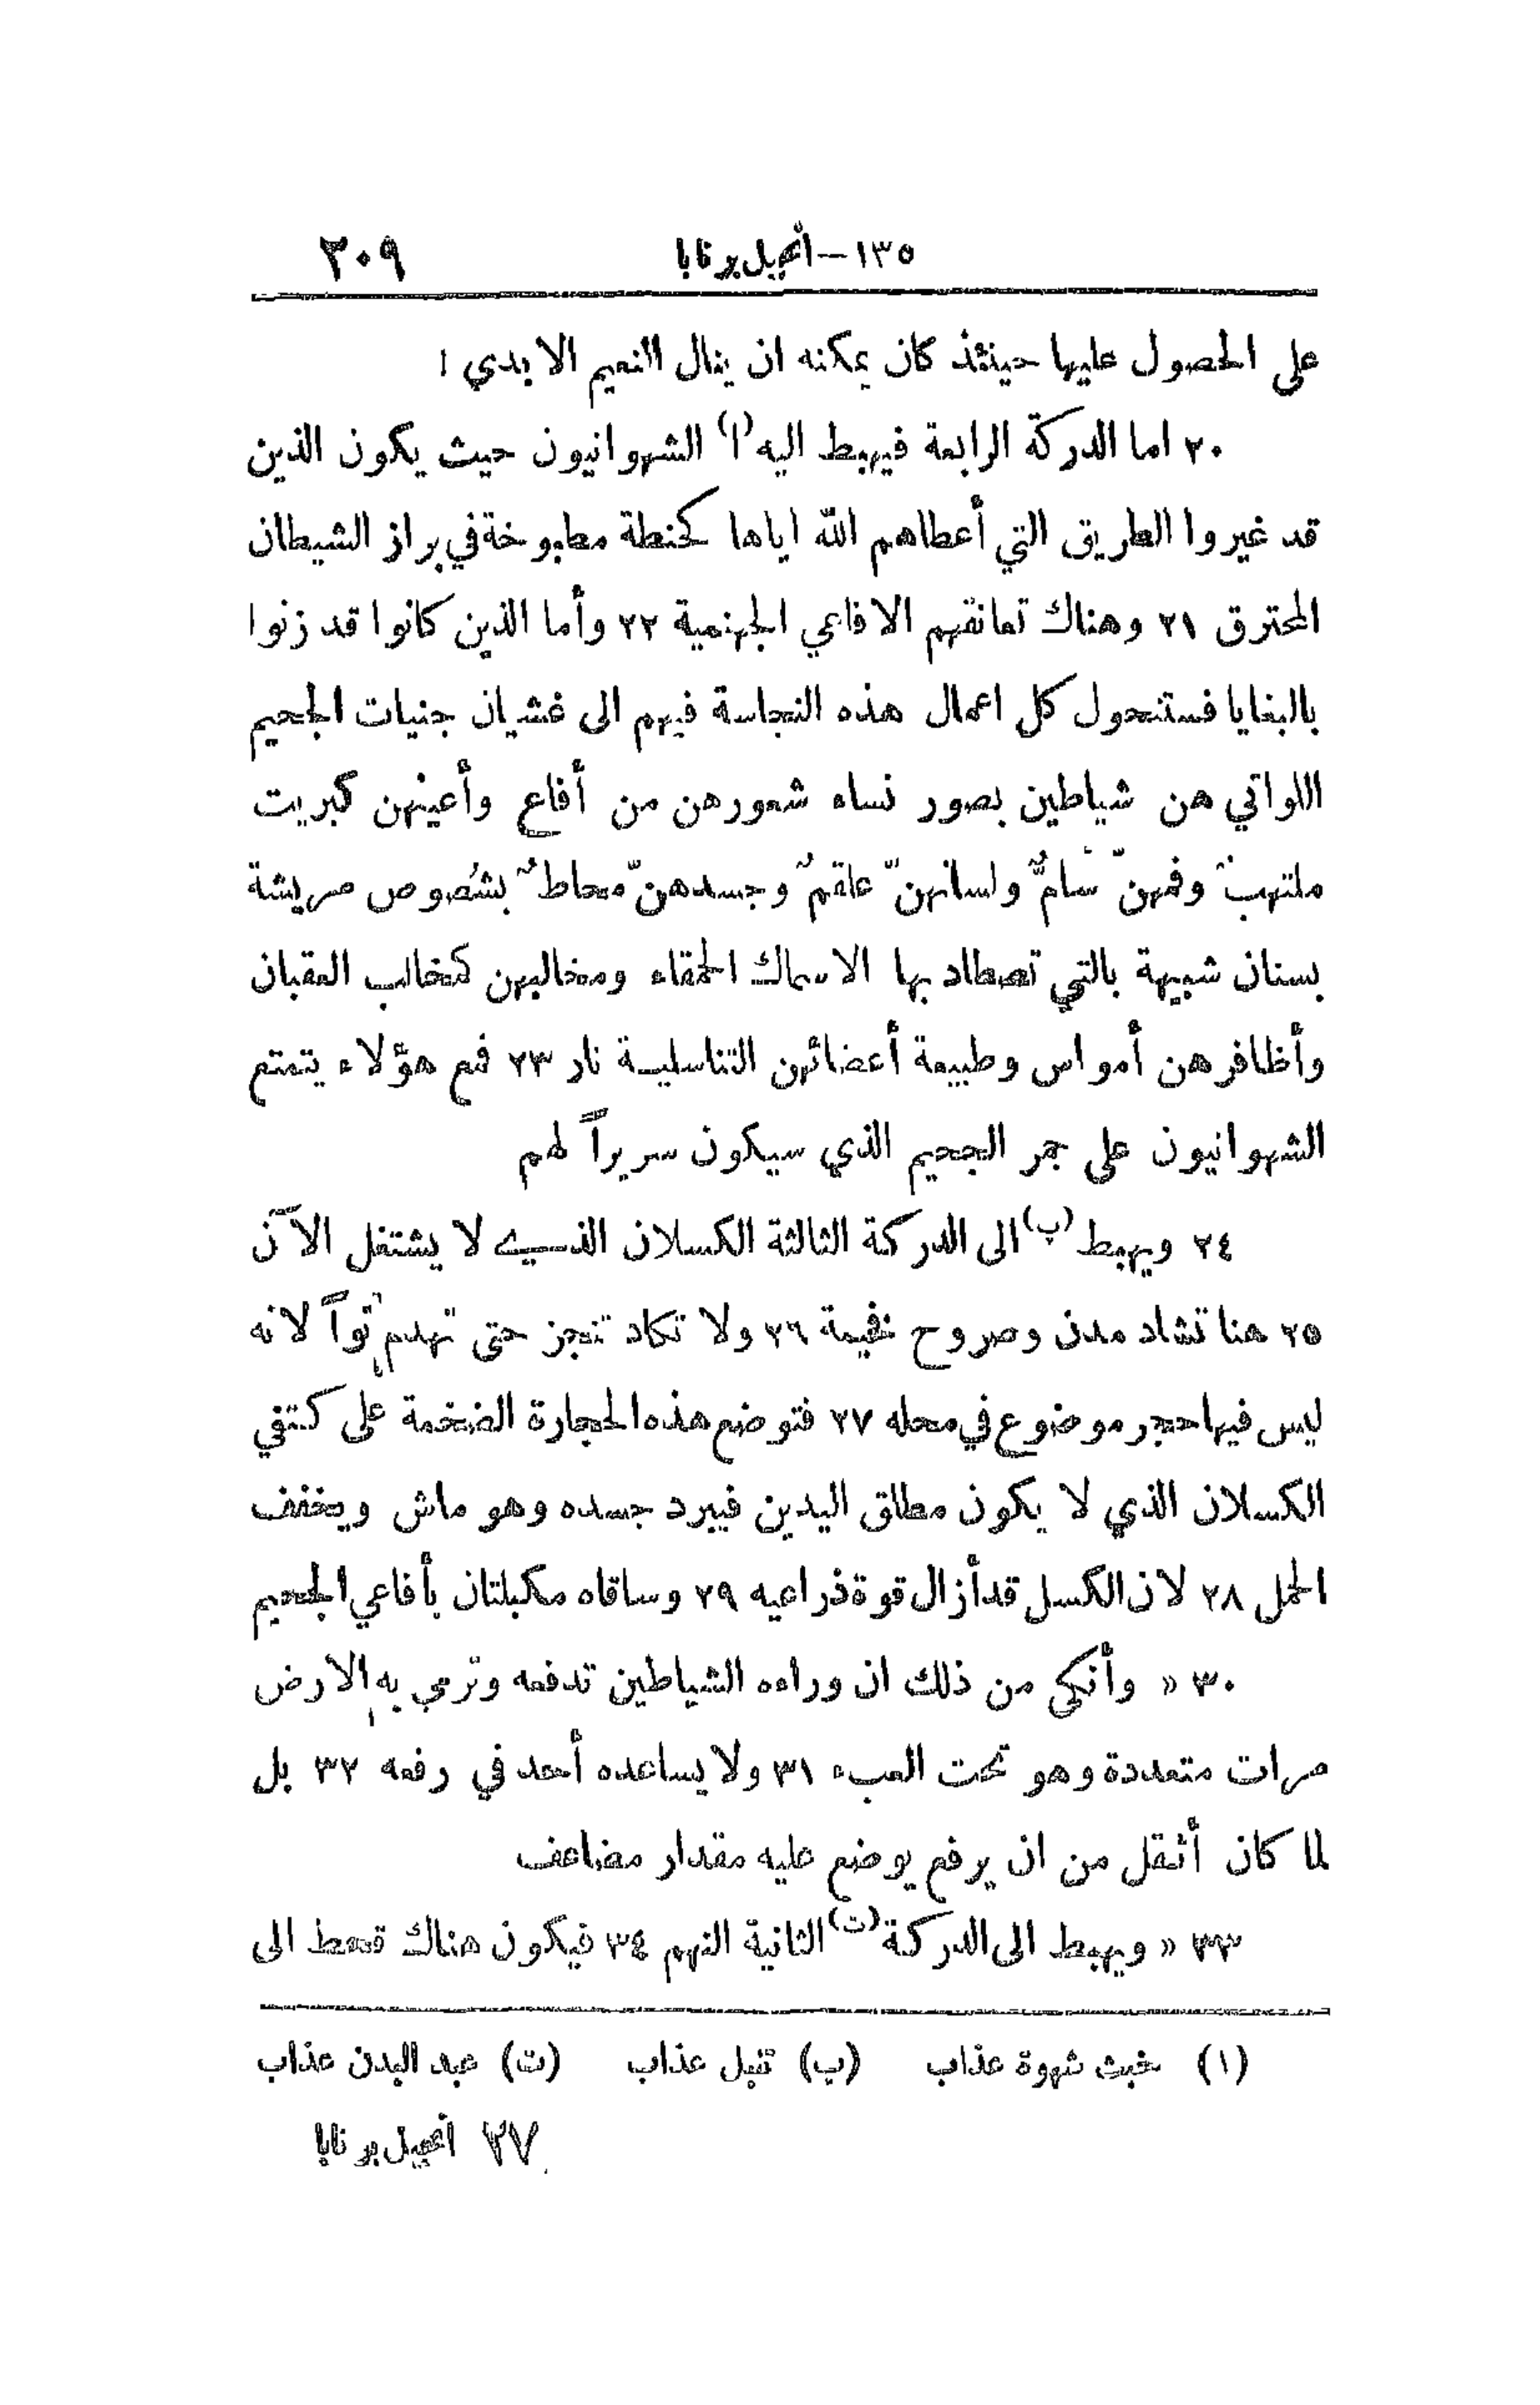 ١٣٥ — أنجيل برنابا ٢٠٩
على الحصول عليها حينئذ كان يمكنه ان ينال النعيم الابدي !
٢٠ اما الدركة الرابعة فيهبط اليه (ا) الشهوانيون حيث يكون الذين
قد غيروا الطريق التي أعطاهم الله اياها كحنطة مطبوخة في براز الشيطان
المحترق ٢١ وهناك تعانقهم الافاعي الجهنمية ٢٢ وأما الذين كانوا قد زنوا
بالبغايا فستتحول كل اعمال هذه النجاسة فيهم الى غشيان جنيات الجحيم
اللواتي هن شياطين بصور نساء شعورهن من أفاع وأعينهن كبريت
ملتهب وفمهنّ سامٌّ ولسانهنّ علقمٌ وجسدهنّ محاطٌ بشُصوص مريشة
بسنان شبيهة بالتي تصطاد بها الاسماك الحمقاء ومخالبهن كمخالب العقبان
وأظافرهن أمواس وطبيعة أعضائهن التناسلية نار ٢٣ فمع هؤلاء يتمتع
الشهوانيون على جمر الجحيم الذي سيكون سريراً لهم
٢٤ ويهبط (ب) الى الدركة الثالثة الكسلان الذي لا يشتغل الآن
٢٥ هنا تشاد مدن وصروح فخيمة ٢٦ ولا تكاد تنجز حتى تهدم تواً لانه
ليس فيها حجر موضوع في محله ٢٧ فتوضع هذه الحجارة الضخمة على كتفي
الكسلان الذي لا يكون مطلق اليدين فيبرد جسده وهو ماش ويخفف
الحمل ٢٨ لان الكسل قد أزال قوة ذراعيه ٢٩ وساقاه مكبلتان بأفاعي الجحيم
٣٠ « وأنكى من ذلك ان وراءه الشياطين تدفعه وترمي به الارض
مرات متعددة وهو تحت العبء ٣١ ولا يساعده أحد في رفعه ٣٢ بل
لما كان أثقل من ان يرفع يوضع عليه مقدار مضاعف
٣٣ « ويهبط الى الدركة (ت) الثانية النهم ٣٤ فيكون هناك قحط الى
(١) خبث شهوة عذاب (ب) تنبل عذاب (ت) عبد البدن عذاب
٢٧ أنجيل برنابا